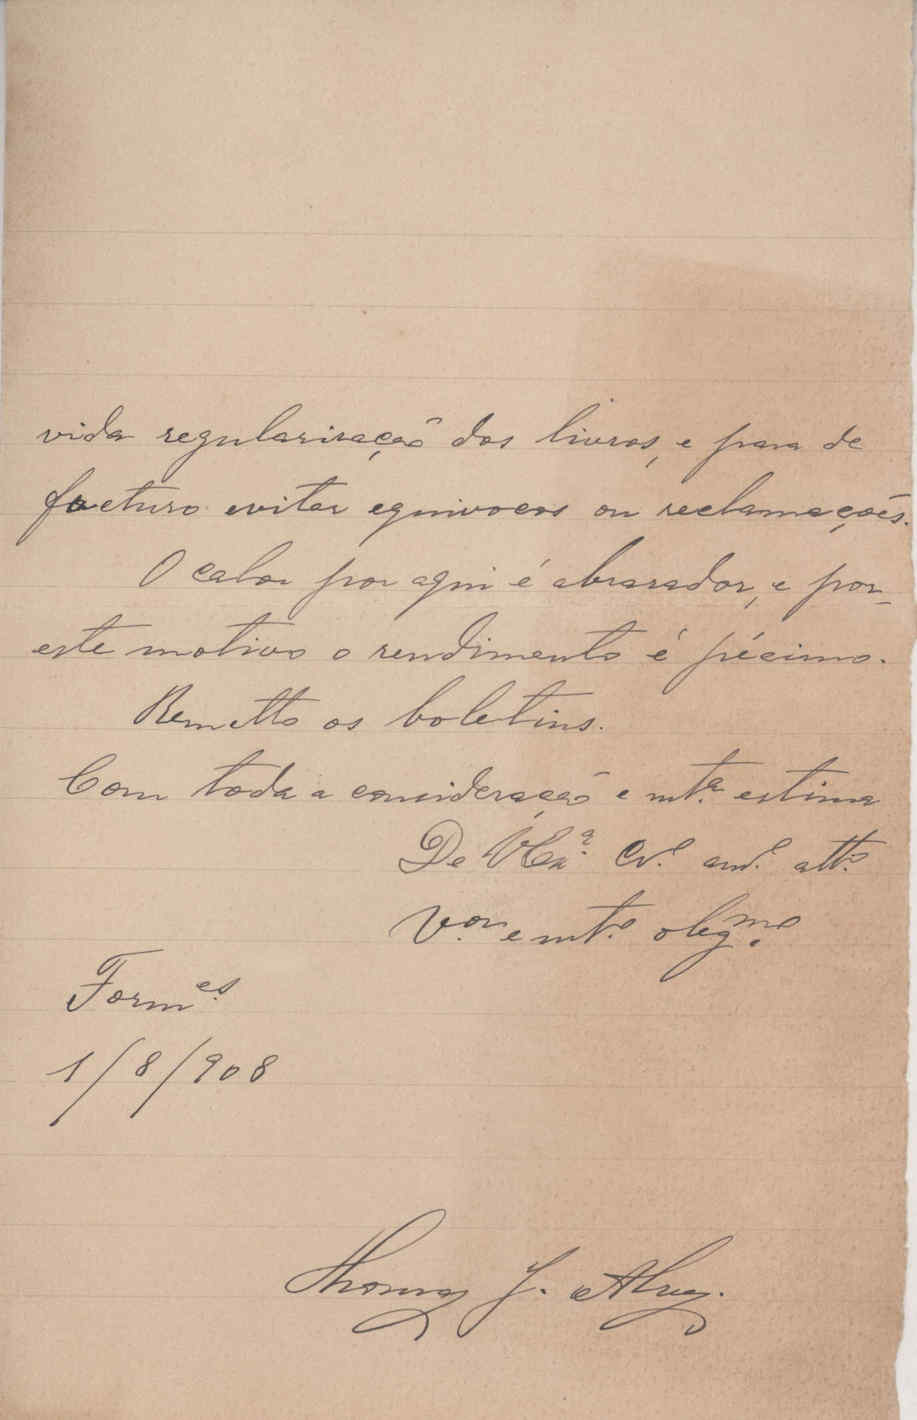 vida regularisação dos livros, e para de
facturo evitar equivocos ou reclamações.
O calor por aqui é abrasador, e por
este motivo o rendimento é pécimo.
Remetto os boletins.
Com toda a consideração e mt.ª estima
De V. Ex.ª Cr.º am.º att.º
V.or e mt.º obrg.mo
Form.es
1/8/908
Thomaz J. Alvez.